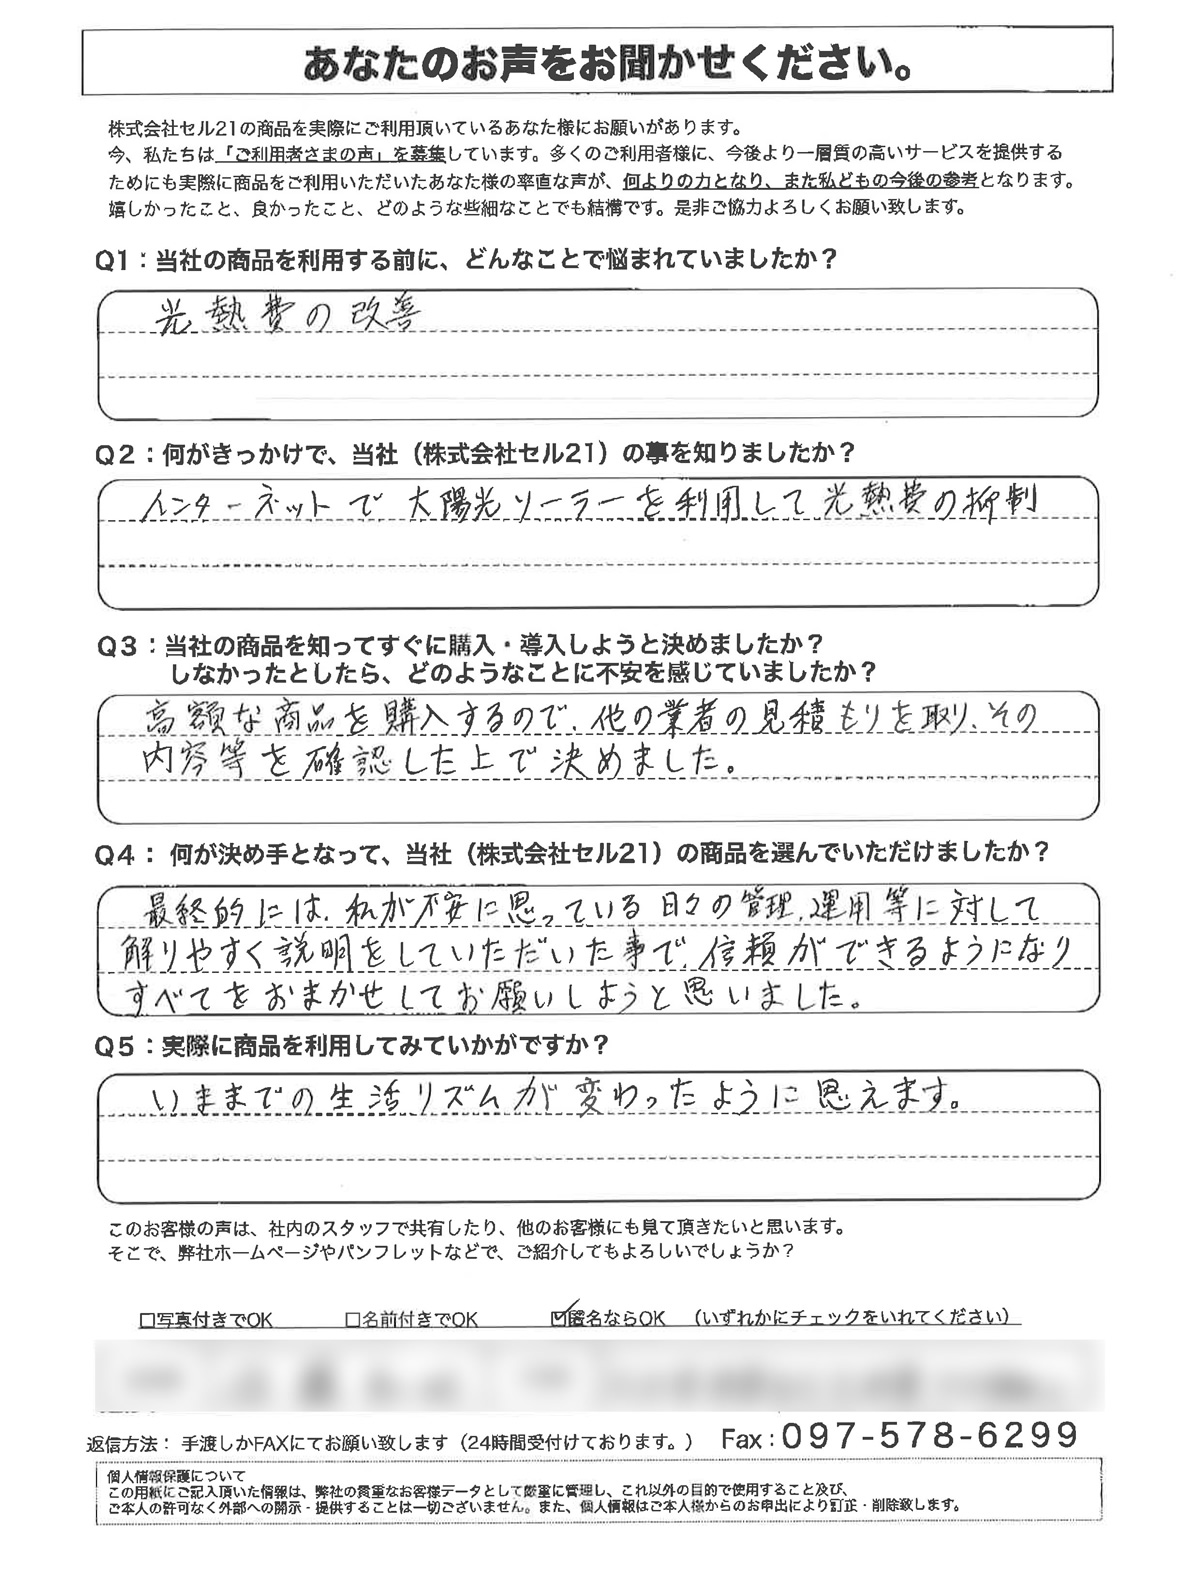 あなたのお声をお聞かせください。
株式会社セル21の商品を実際にご利用頂いているあなた様にお願いがあります。
今、私たちは「ご利用者さまの声」を募集しています。多くのご利用者様に、今後より一層質の高いサービスを提供する
ためにも実際に商品をご利用いただいたあなた様の率直な声が、何よりの力となり、また私どもの今後の参考となります。
嬉しかったこと、良かったこと、どのような些細なことでも結構です。是非ご協力よろしくお願い致します。
Q1：当社の商品を利用する前に、どんなことで悩まれていましたか？
光熱費の改善
Q2：何がきっかけで、当社（株式会社セル21）の事を知りましたか？
インターネットで太陽光ソーラーを利用して光熱費の抑制
Q3：当社の商品を知ってすぐに購入・導入しようと決めましたか？
しなかったとしたら、どのようなことに不安を感じていましたか？
高額な商品を購入するので、他の業者の見積もりを取り、その
内容等を確認した上で決めました。
Q4： 何が決め手となって、当社（株式会社セル21）の商品を選んでいただけましたか？
最終的には、私が不安に思っている日々の管理、運用等に対して
解りやすく説明をしていただいた事で、信頼ができるようになり
すべてをおまかせしてお願いしようと思いました。
Q5：実際に商品を利用してみていかがですか？
いままでの生活リズムが変わったように思えます。
このお客様の声は、社内のスタッフで共有したり、他のお客様にも見て頂きたいと思います。
そこで、弊社ホームページやパンフレットなどで、ご紹介してもよろしいでしょうか？
□写真付きでOK □名前付きでOK ☑匿名ならOK （いずれかにチェックをいれてください）
返信方法： 手渡しかFAXにてお願い致します（24時間受付けております。） Fax：097-578-6299
個人情報保護について
この用紙にご記入頂いた情報は、弊社の貴重なお客様データとして厳重に管理し、これ以外の目的で使用すること及び、
ご本人の許可なく外部への開示・提供することは一切ございません。また、個人情報はご本人様からのお申出により訂正・削除致します。